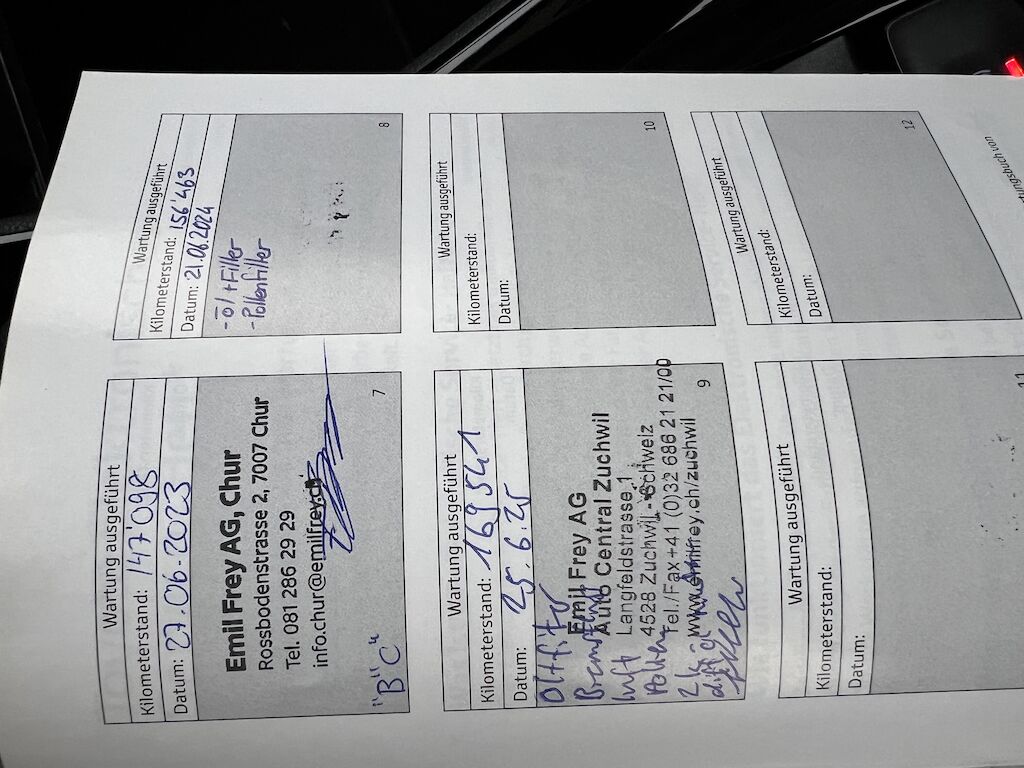 Wartung ausgeführt
Kilometerstand: 147'098
Datum: 27.06.2023
Emil Frey AG, Chur
Rossbodenstrasse 2, 7007 Chur
Tel. 081 286 29 29
info.chur@emilfrey.ch
"B" "C"
7
Wartung ausgeführt
Kilometerstand: 156'463
Datum: 21.06.2024
- Öl + Filter
- Pollenfilter
8
Wartung ausgeführt
Kilometerstand: 169541
Datum: 25.6.25
Emil Frey AG
Auto Central Zuchwil
Langfeldstrasse 1
4528 Zuchwil - Schweiz
Tel./Fax +41 (0)32 686 21 21/00
www.emilfrey.ch/zuchwil
Luft
Pollen
9
Wartung ausgeführt
Kilometerstand:
Datum:
10
Wartung ausgeführt
Kilometerstand:
Datum:
11
Wartung ausgeführt
Kilometerstand:
Datum:
12